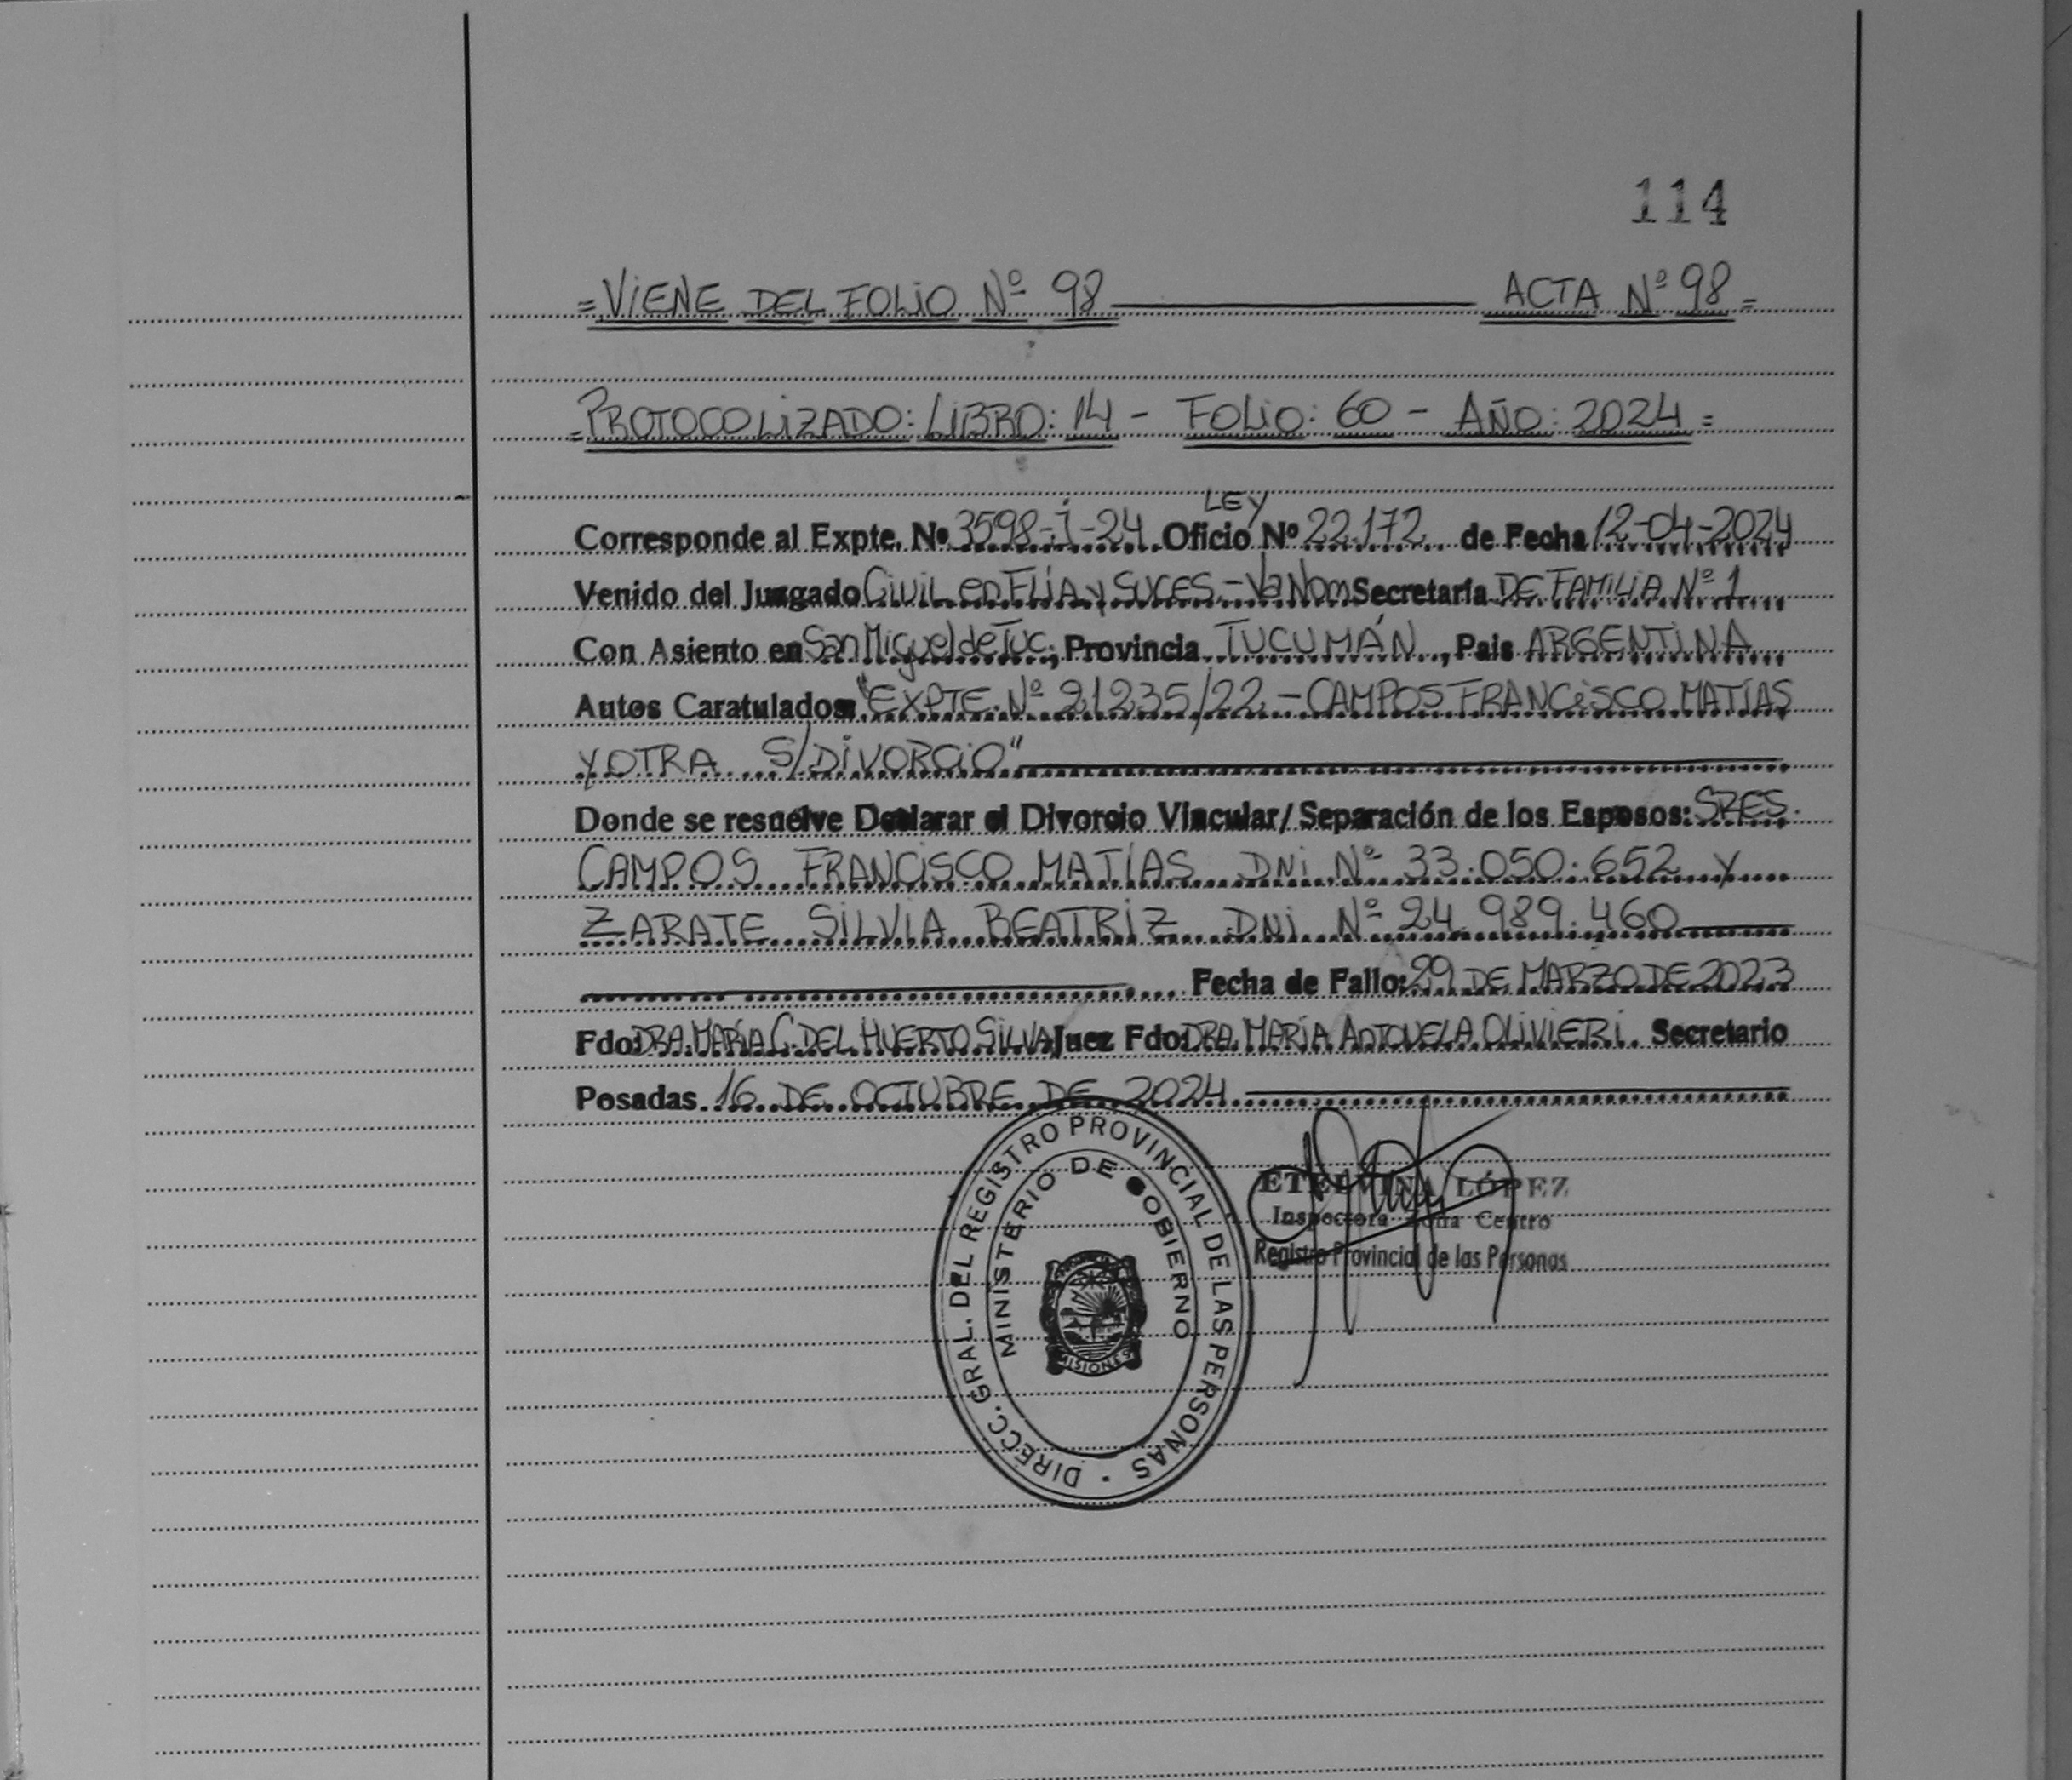 114
= VIENE DEL FOLIO Nº 98 ACTA Nº 98 =
= PROTOCOLIZADO: LIBRO: 14 - FOLIO: 60 - AÑO: 2024 =
LEY
Corresponde al Expte. Nº 3598-I-24 Oficio Nº 22.172 de Fecha 12-04-2024
Venido del Juzgado Civil en FLIA y SUCES.- Va Nom Secretaría DE FAMILIA Nº 1
Con Asiento en San Miguel de Tuc., Provincia TUCUMÁN, Pais ARGENTINA
Autos Caratulados "EXPTE. Nº 21235/22 - CAMPOS FRANCISCO MATÍAS
Y OTRA S/DIVORCIO"
Donde se resuelve Declarar el Divorcio Vincular/Separación de los Esposos: SRES.
CAMPOS FRANCISCO MATÍAS DNI Nº 33.050.652 y
ZARATE SILVIA BEATRIZ DNI Nº 24.989.460
Fecha de Fallo: 29 DE MARZO DE 2023
Fdo: DRA. MARÍA C. DEL HUERTO SILVA Juez Fdo: DRA. MARÍA ANTONELA OLIVIERI. Secretario
Posadas 16 DE OCTUBRE DE 2024
DIRECC. GRAL. DEL REGISTRO PROVINCIAL DE LAS PERSONAS
MINISTERIO DE GOBIERNO
MISIONES
ETELVINA LÓPEZ
Inspectora Zona Centro
Registro Provincial de las Personas